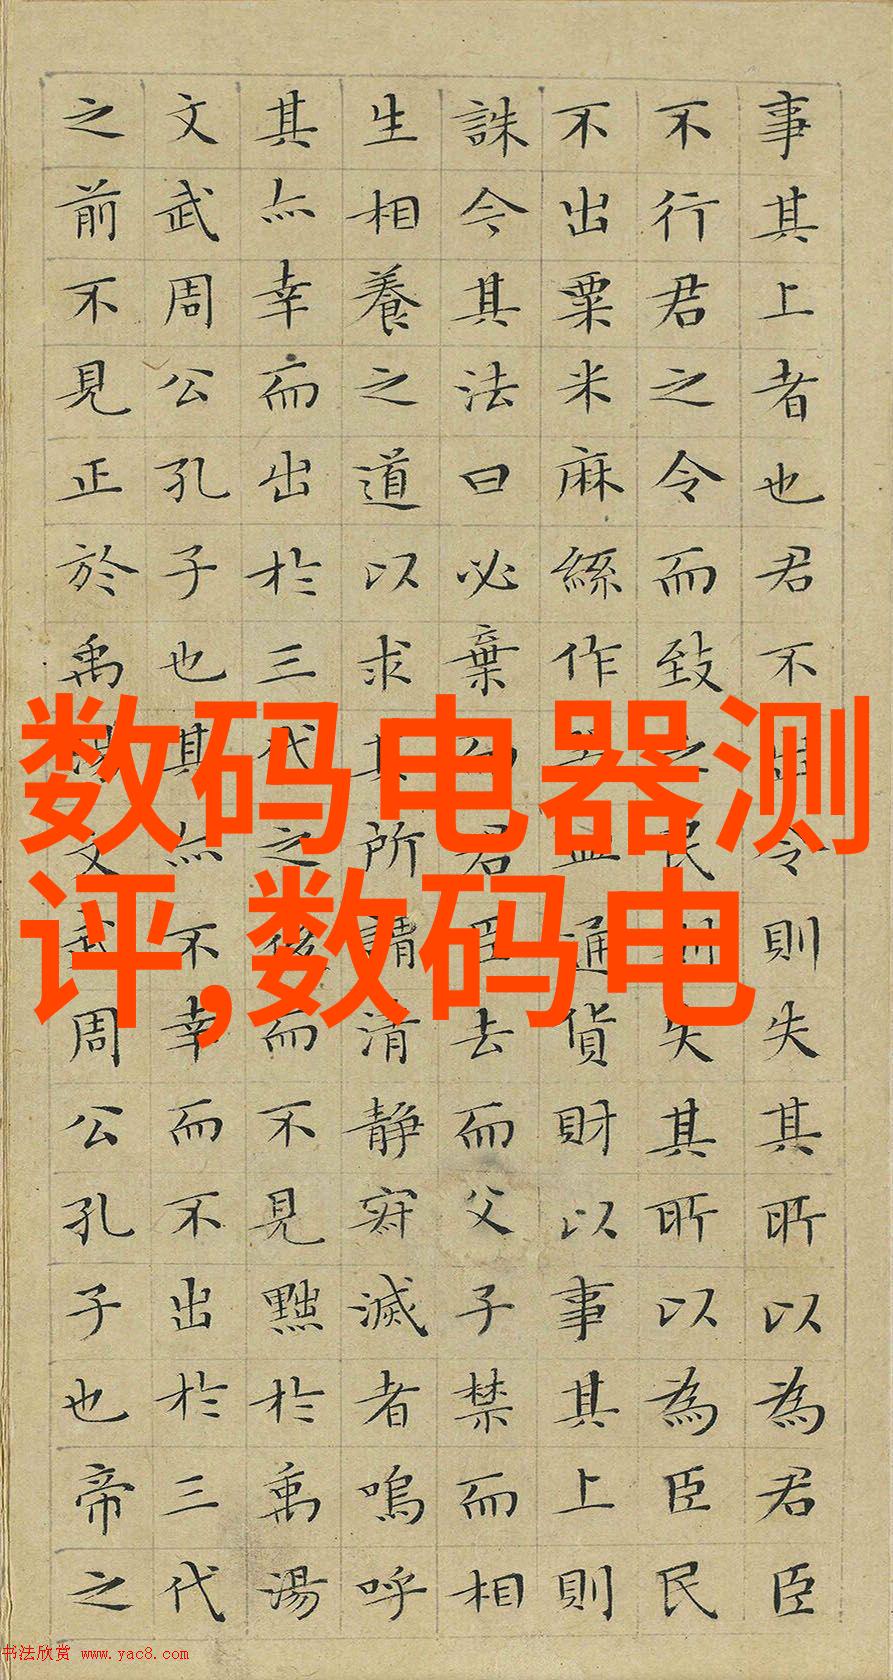 事其上者也君不出令則失其所以為君臣
不行君之令而致之民則失其所以為臣民
不出粟米麻絲作皿通貨財以事其上則
誅今其法曰必棄而君臣去而父子禁而相
生相養之道以求其所清静寂滅者嗚呼
其亦幸而出於三代之後而不見黜於禹湯
文武周公孔子也其亦不幸而不出於三代
之前不見正於禹湯文武周公孔子也帝之
数码电器测
评,数码电
书法欣赏 www.yac8.com